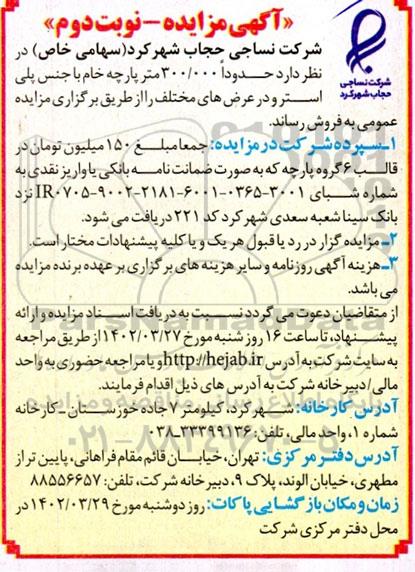 «آگهی مزایده - نوبت دوم»
شرکت نساجی
حجاب شهرکرد
شرکت نساجی حجاب شهرکرد(سهامی خاص) در
نظر دارد حدوداً ۳۰۰/۰۰۰ متر پارچه خام با جنس پلی
استر و در عرض های مختلف را از طریق برگزاری مزایده
عمومی به فروش رساند.
۱ـ سپرده شرکت در مزایده: جمعا مبلغ ۱۵۰ میلیون تومان در
قالب ۶ گروه پارچه که به صورت ضمانت نامه بانکی یا واریز نقدی به
شماره شبای IR۰۷۰۵-۹۰۰۲-۲۱۸۱-۶۰۰۱-۰۳۶۵-۳۰۰۱ نزد
بانک سینا شعبه سعدی شهرکرد کد ۲۲۱ دریافت می شود.
۲ـ مزایده گزار در رد یا قبول هر یک و یا کلیه پیشنهادات مختار است.
۳ـ هزینه آگهی روزنامه و سایر هزینه های برگزاری بر عهده برنده مزایده
می باشد.
از متقاضیان دعوت می گردد نسبت به دریافت اسناد مزایده و ارائه
پیشنهاد، تا ساعت ۱۶ روز شنبه مورخ ۱۴۰۲/۰۳/۲۷ از طریق مراجعه
به سایت شرکت به آدرس http://hejab.ir و یا مراجعه حضوری به واحد
مالی/دبیرخانه شرکت به آدرس های ذیل اقدام فرمایند.
آدرس کارخانه: شهرکرد، کیلومتر ۷ جاده خوزستان ـ کارخانه
شماره ۱، واحد مالی، تلفن: ۳۳۳۹۹۱۳۶-۰۳۸
آدرس دفتر مرکزی: تهران، خیابان قائم مقام فراهانی، پایین تر از
مطهری، خیابان الوند، پلاک ۹، دبیرخانه شرکت، تلفن: ۸۸۵۵۶۶۵۷
زمان و مکان بازگشایی پاکات: روز دوشنبه مورخ ۱۴۰۲/۰۳/۲۹ در
محل دفتر مرکزی شرکت